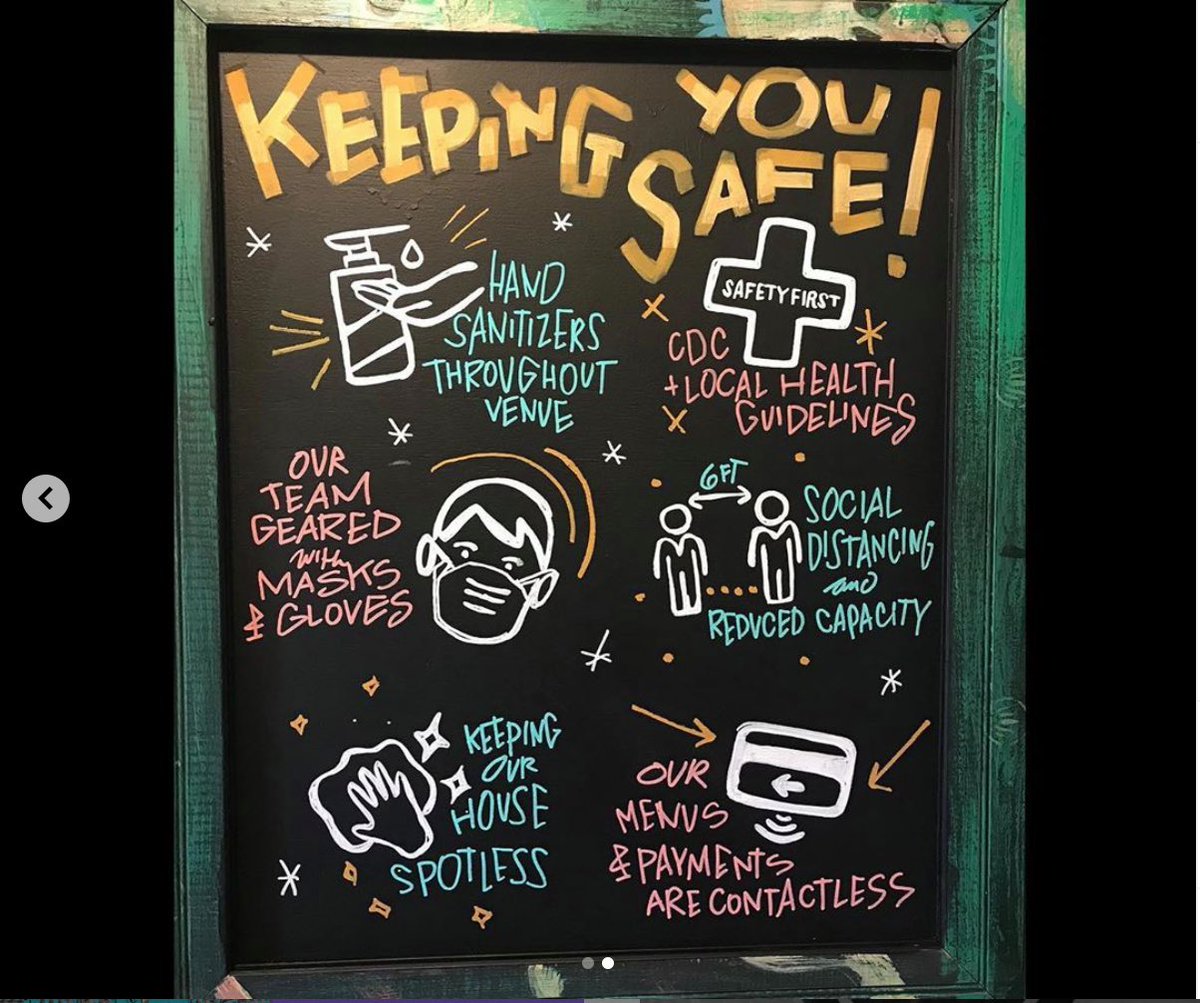 KEEPING YOU
SAFE!
HAND
SANITIZERS
THROUGHOUT
VENUE
SAFETY FIRST
CDC
+ LOCAL HEALTH
GUIDELINES
OUR
TEAM
GEARED
with
MASKS
& GLOVES
6FT
SOCIAL
DISTANCING
and
REDUCED CAPACITY
KEEPING
OUR
HOUSE
SPOTLESS
OUR
MENUS
& PAYMENTS
ARE CONTACTLESS